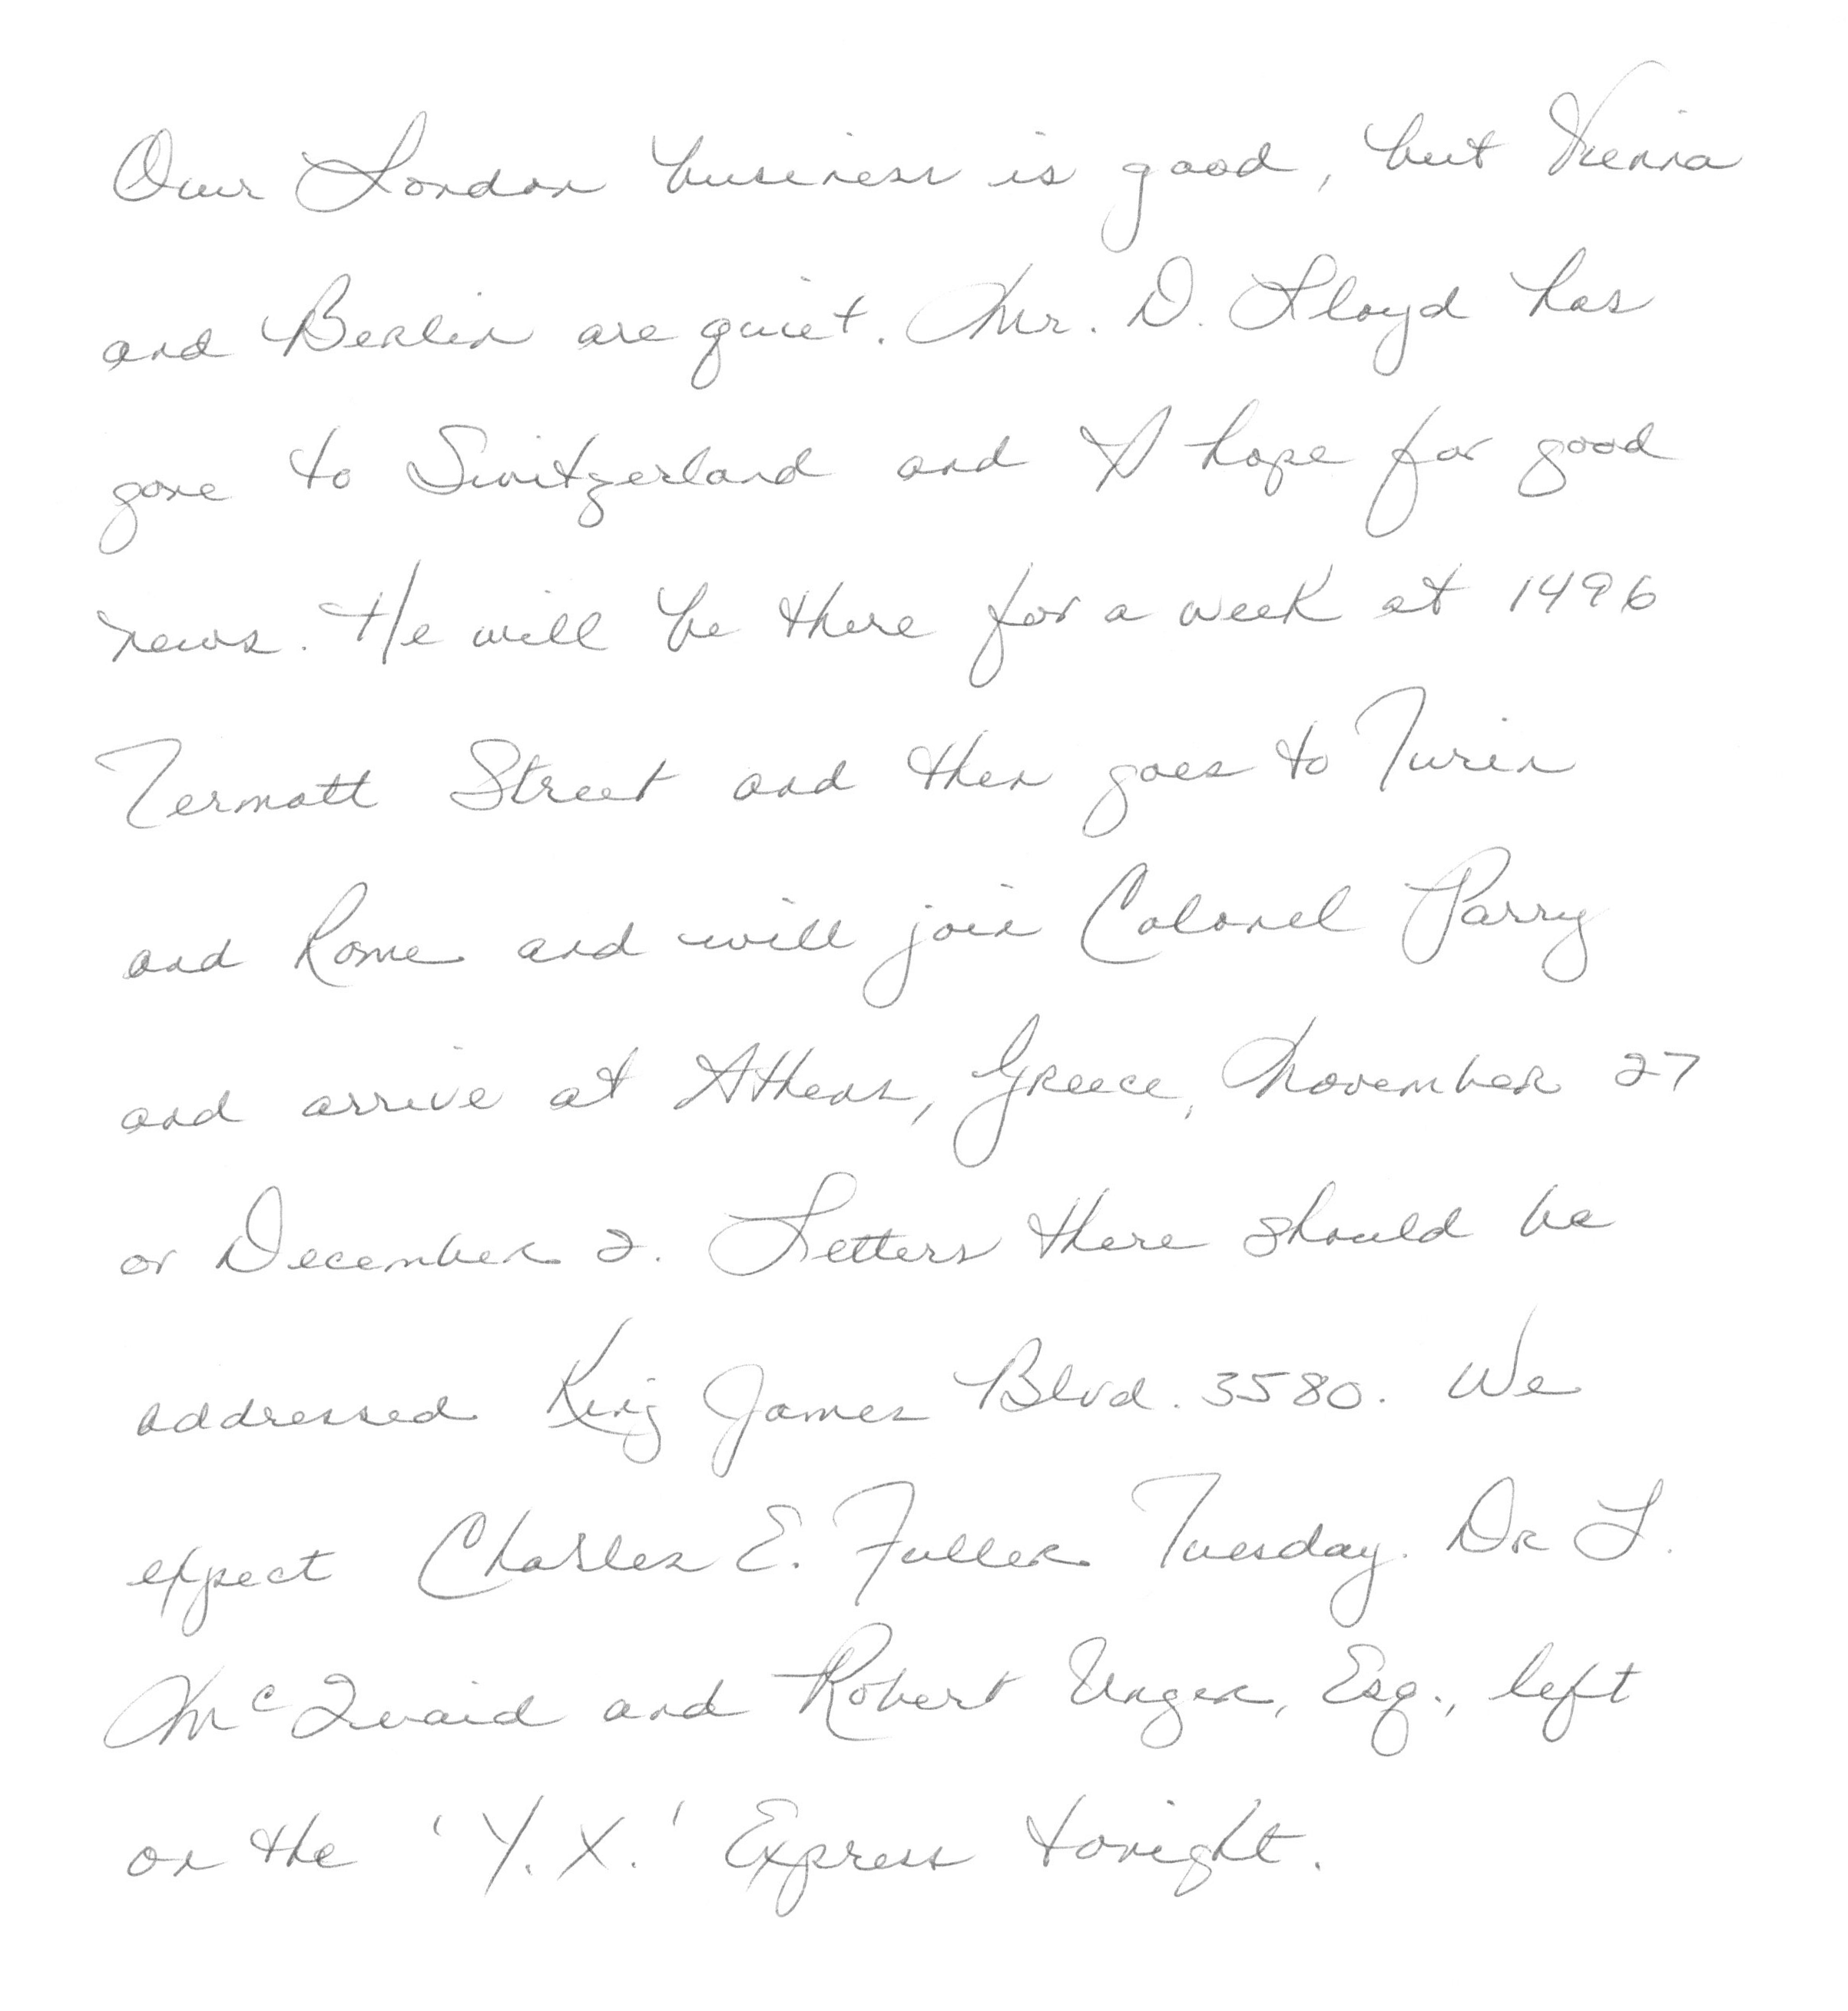 Our London business is good, but Vienna
and Berlin are quiet. Mr. D. Lloyd has
gone to Switzerland and I hope for good
news. He will be there for a week at 1496
Zermott Street and then goes to Turin
and Rome and will join Colonel Parry
and arrive at Athens, Greece, November 27
or December 2. Letters there should be
addressed King James Blvd. 3580. We
expect Charles E. Fuller Tuesday. Dr L.
McQuaid and Robert Unger, Esq., left
on the 'Y. X.' Express tonight.